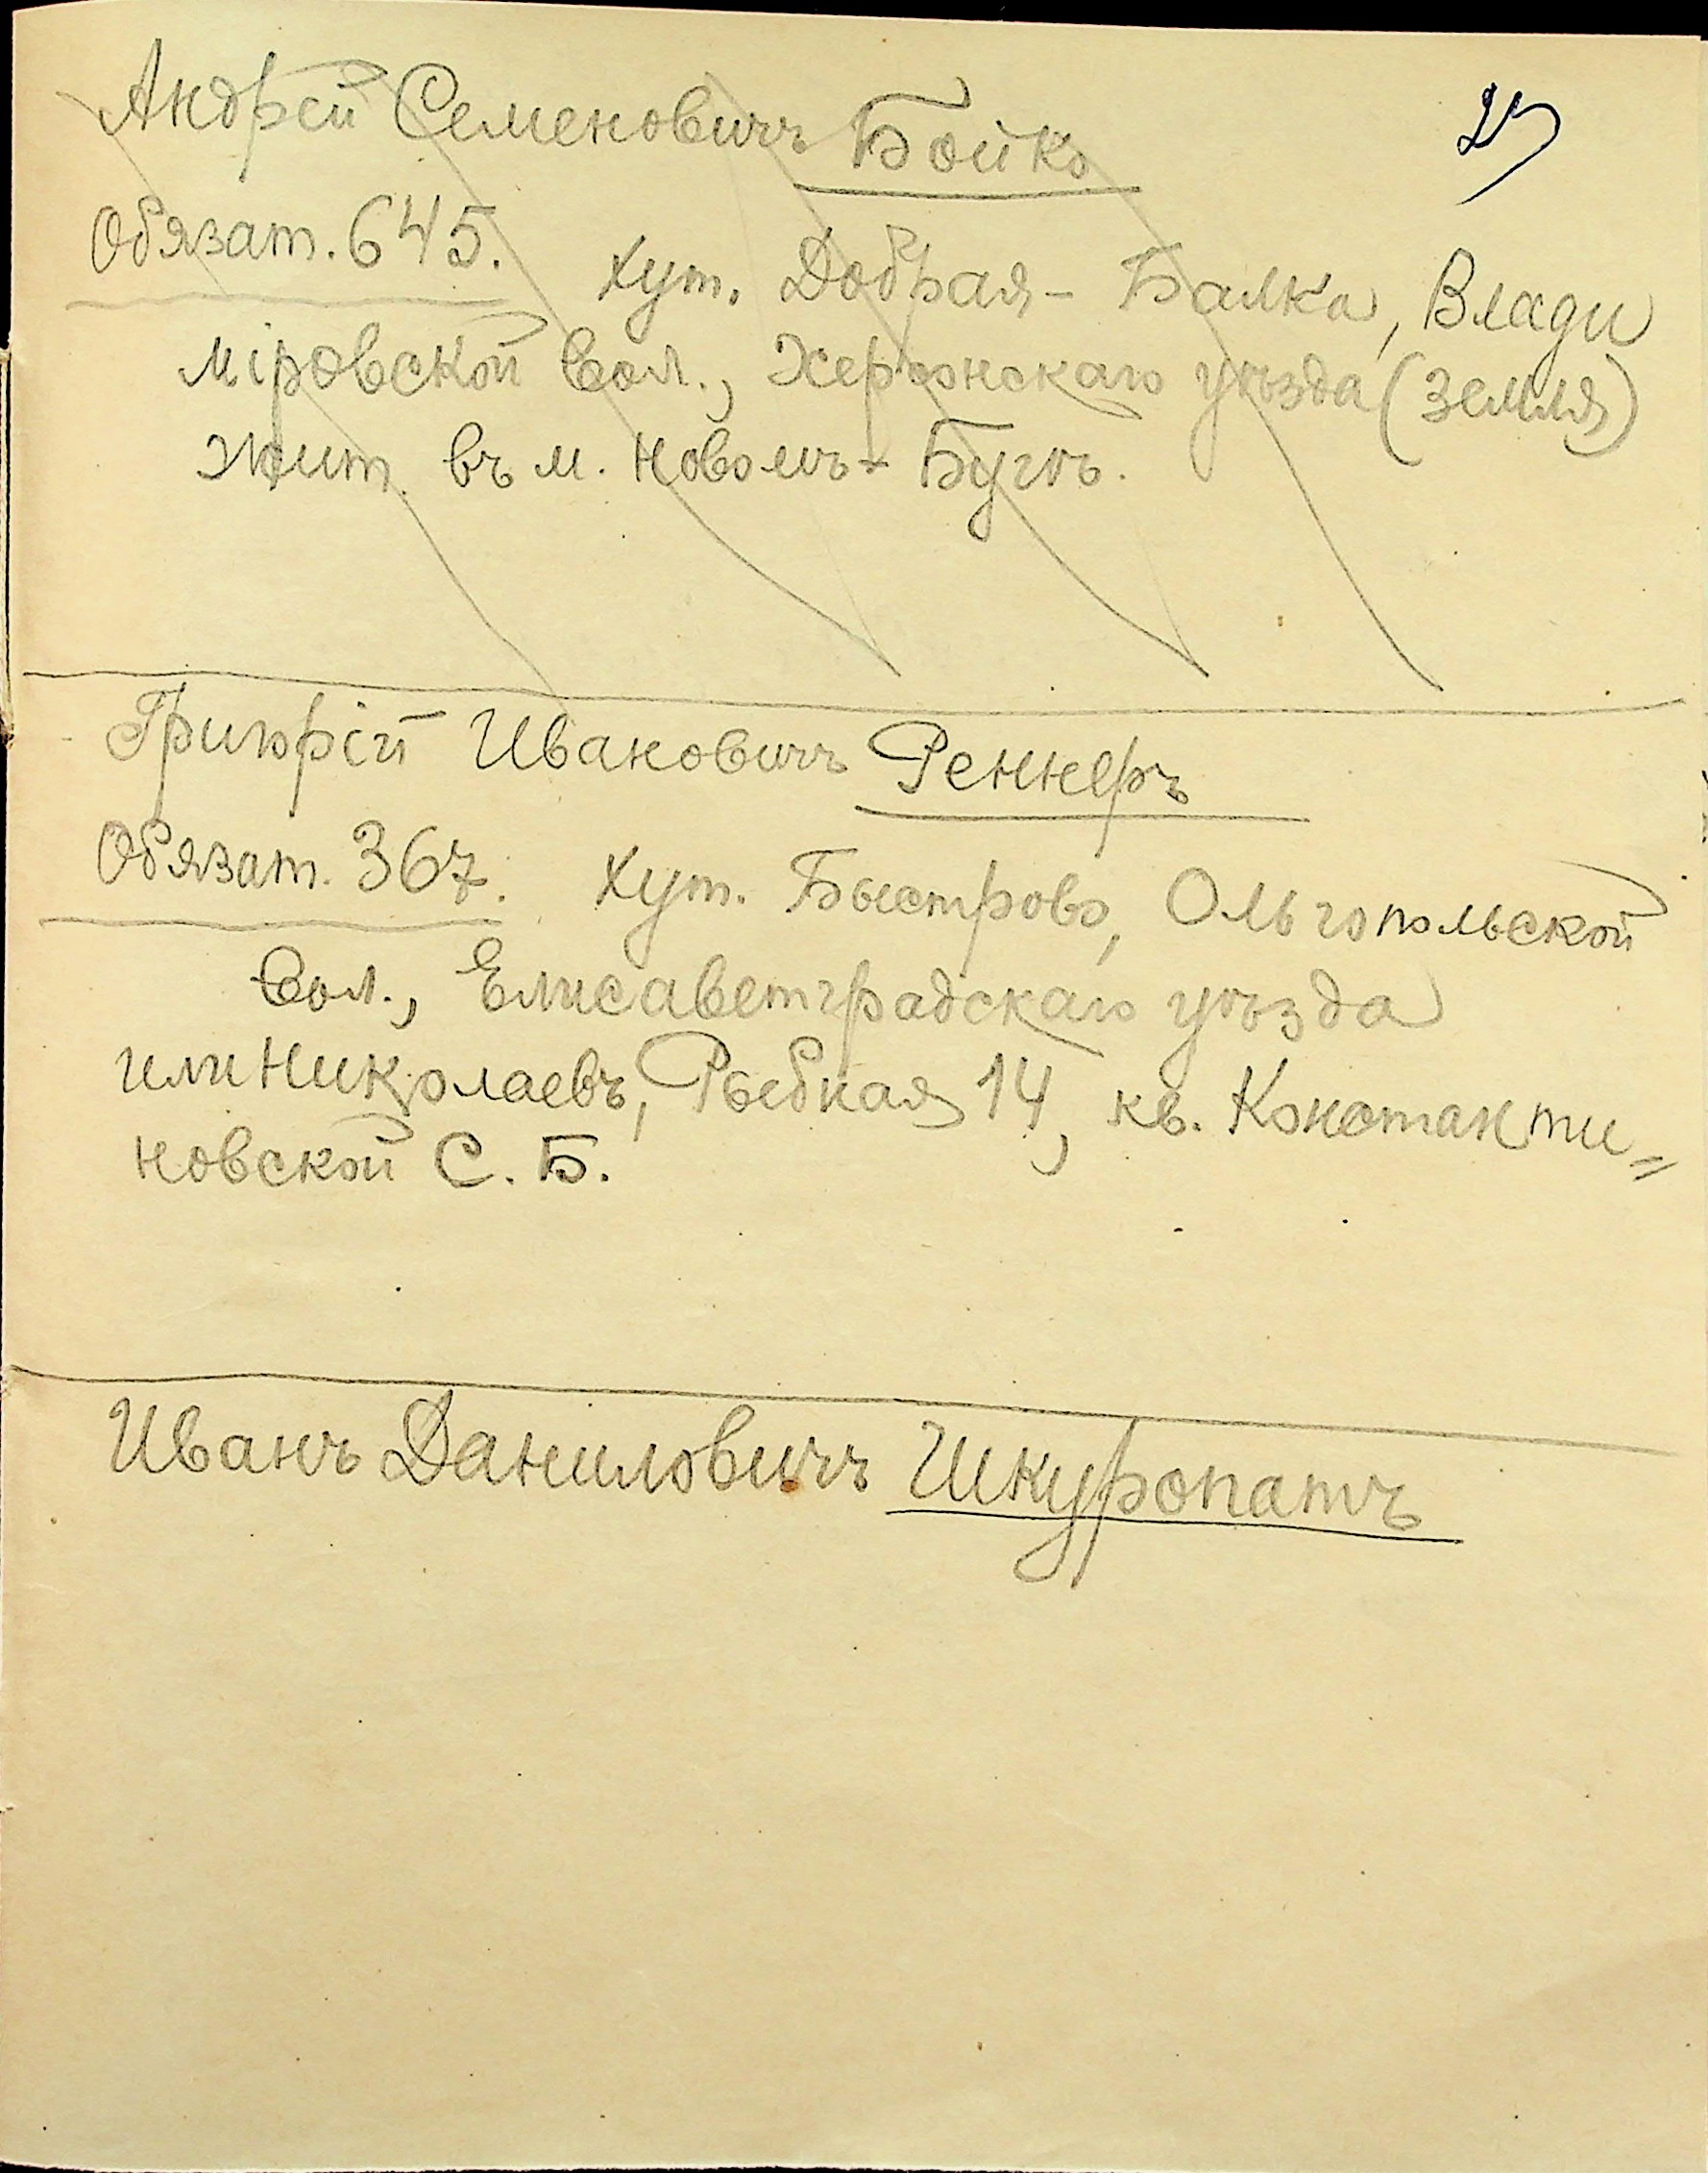 Андрей Семеновичъ Бойко
Обязат. 645.
хут. Добрая - Балка, Влади
міровской вол., Херсонскаго уѣзда (земля)
жит. въ м. Новомъ - Бугѣ.
Григорій Ивановичъ Реннеръ
Обязат. 367. хут. Быстрово, Ольгопольской
вол., Елисаветградскаго уѣзда
или Николаевъ, Рыбная 14, кв. Константи〃
новской С. Б.
Иванъ Даниловичъ Шкуропатъ